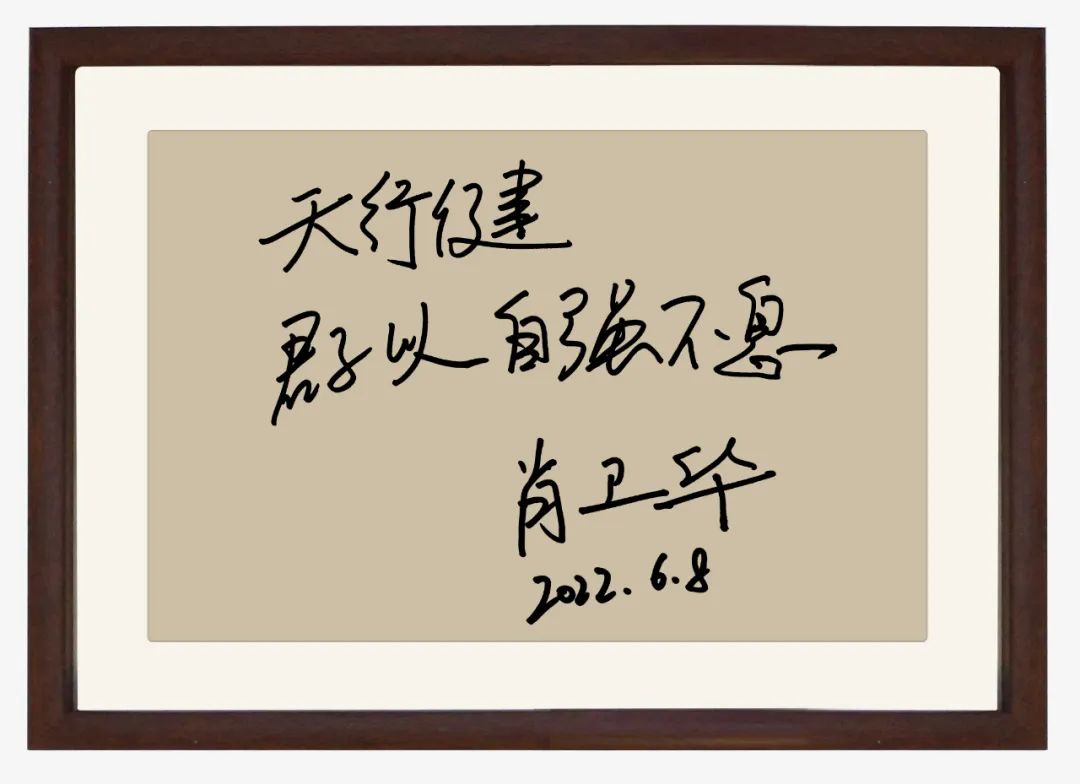 天行健
君子以自强不息
肖卫华
2022.6.8